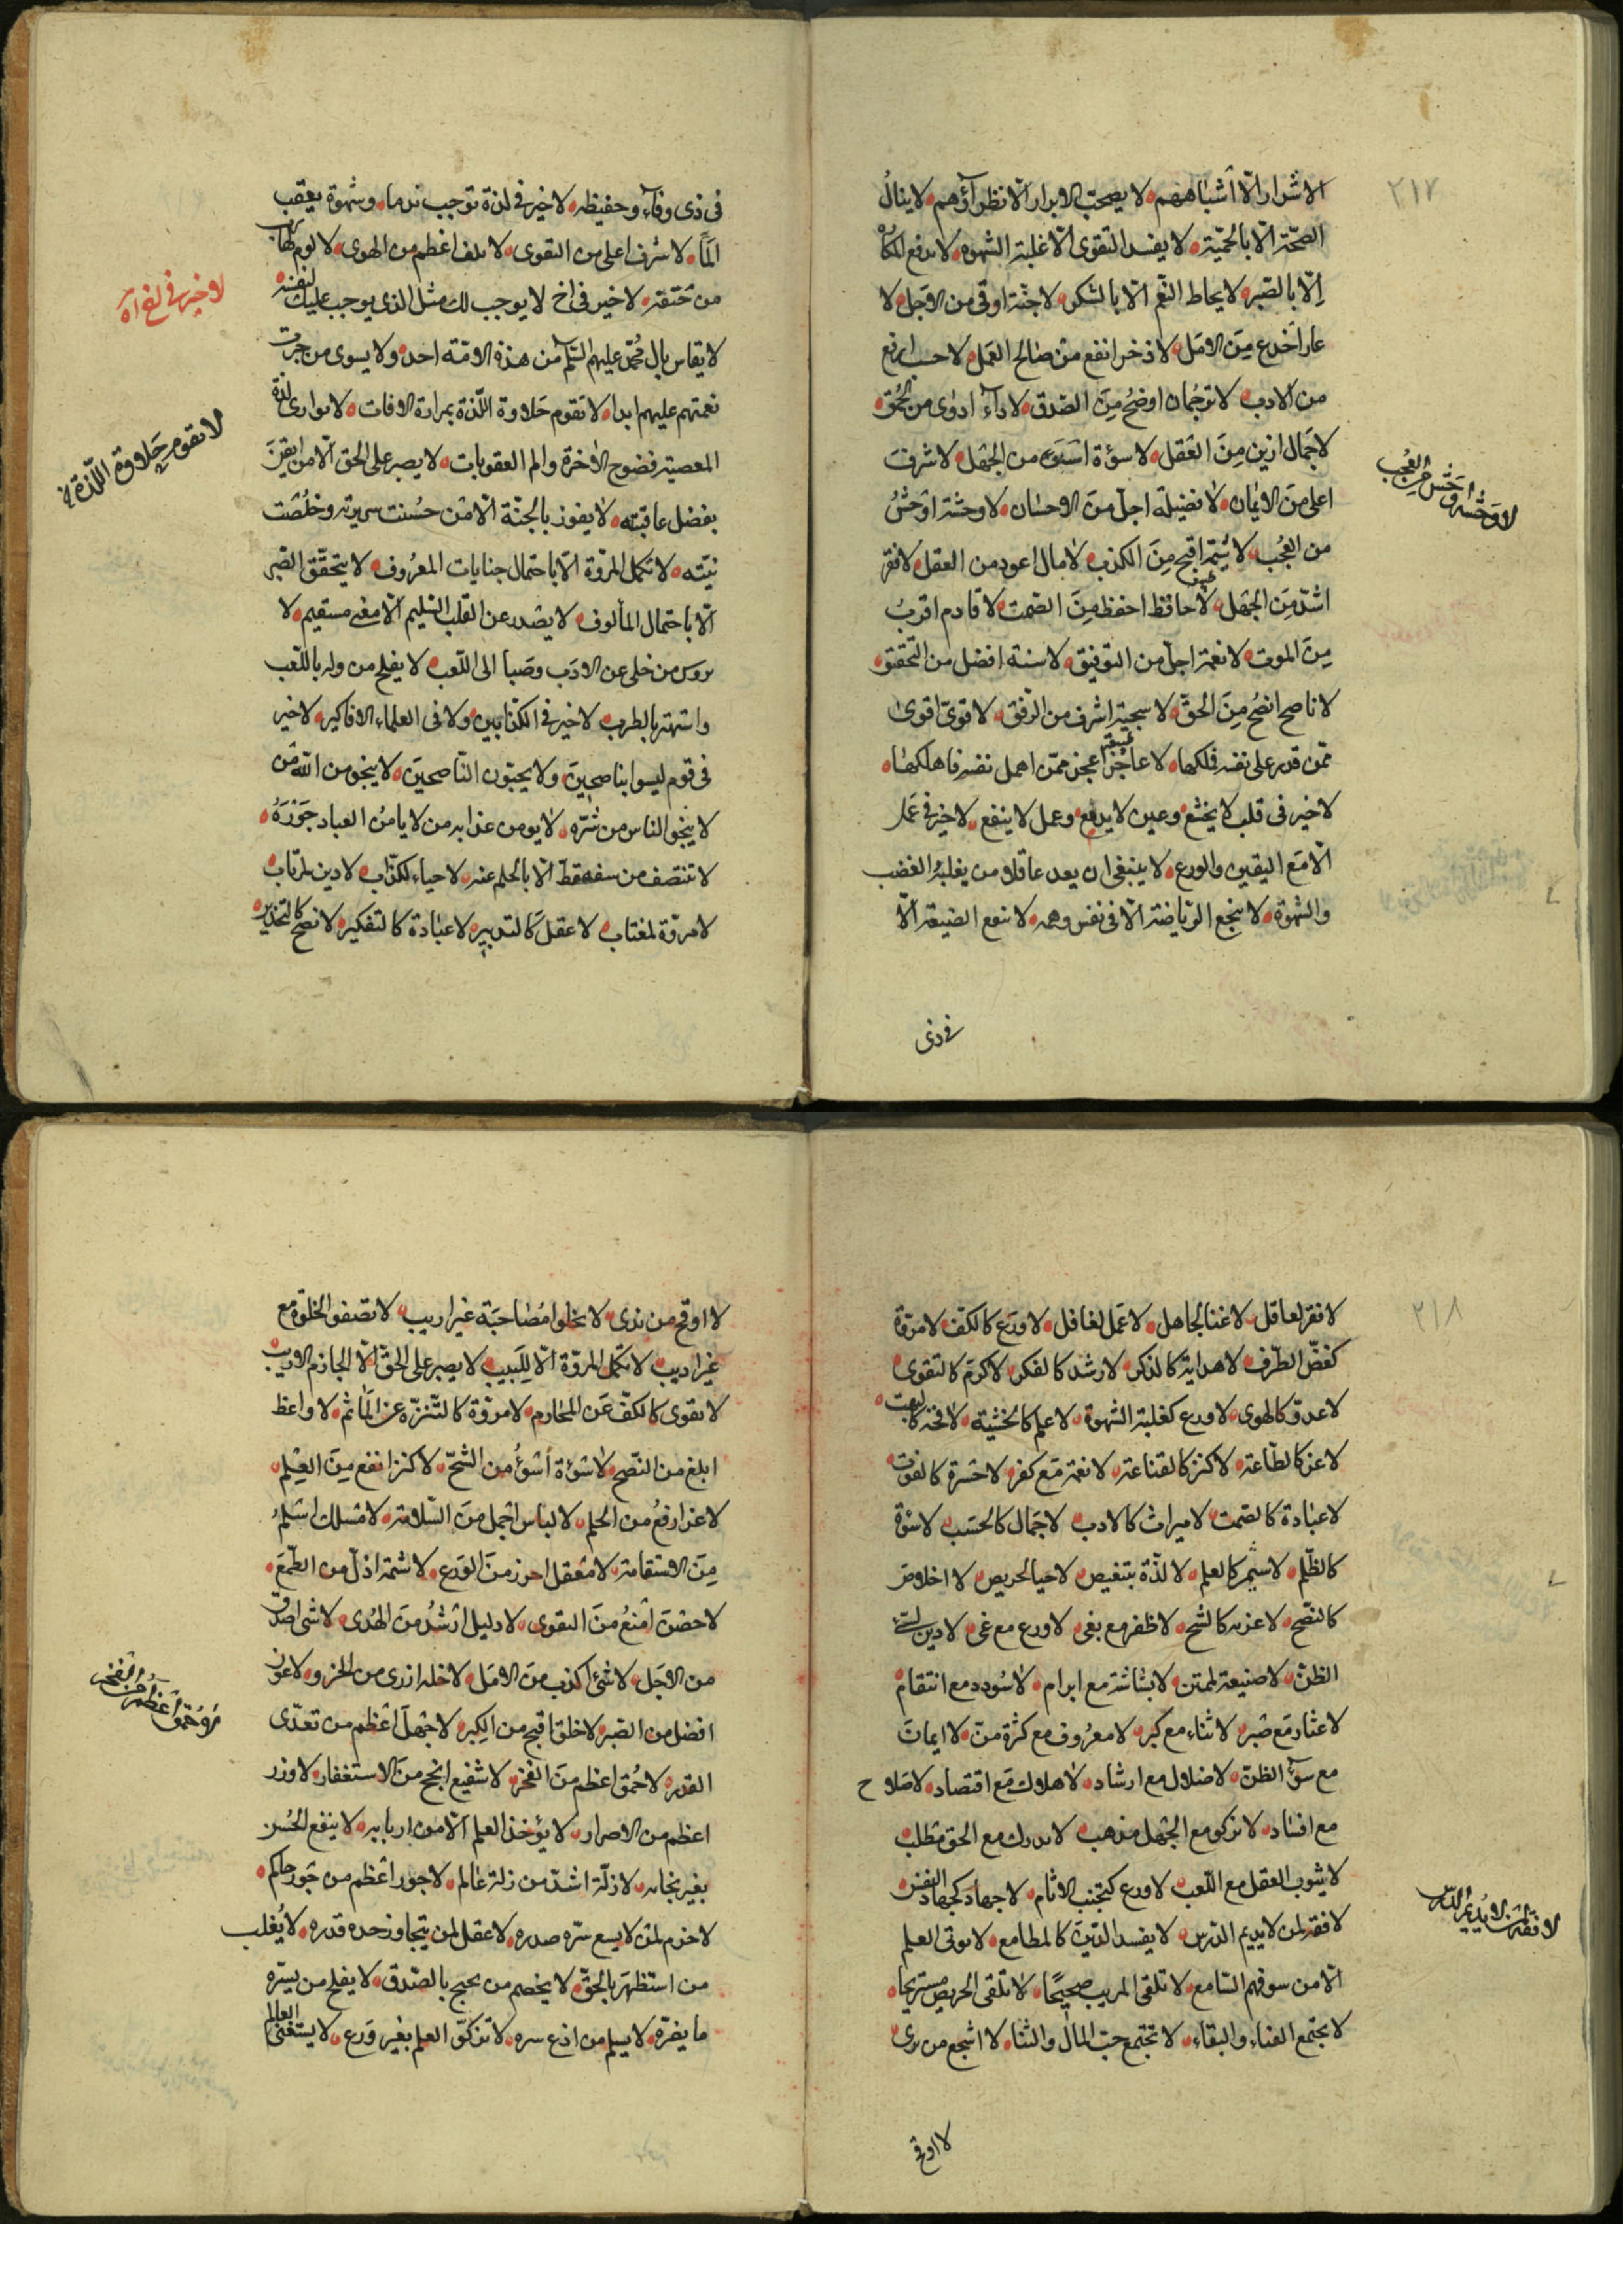 ٢١٧
الاشرار الّا أشباههم لا يصحب الابرار الّا نظرآؤهم لا ينالُ
الصحّة الّا بالحميّة لا يفسد التقوى الّا غلبة الشهوه لا يدفع المكاره
اِلّا بالصّبر لا يحاط النّعم الّا بالشكر لا جنّة اوقى من الاجل لا
عار اخدع مِنَ الامَل لا ذخر انفع من صٰالح العَمل لا حسب ارفع
من الادب لا ترجُمان اوضحُ مِنَ الصّدق لا دآء ادوى من الحُمق
لا جَمال ازين مِنَ العَقل لا سوٴة اسْوَء من الجَهل لا شرفَ
اعلى منَ الايمان لا فضيلة اجلّ منَ الاحسٰان لا وحشة اوْحشُ
من العُجْب لا شيمَ اقبح مِنَ الكذب لا مال اعود من العقل لا فقر
اشدّ مِنَ الجَهل لا حافظ احفظ مِنَ الصَمت لا قادم اقربُ
مِنَ الموت لا نعمَة اجلّ من التوفيق لا سنة افضل من التّحقيق
لا ناصح انصَحُ مِنَ الحقّ لا سجيّة اشرف من الرّفق لا قوىّ اقوىٰ
ممّن قدر على نفسه فملكها لا عاجَز اعجز ممّن اهمل نفسه فاهلكهٰا
لا خير فى قلب لا يخشع وعين لا يدمع وعمل لا ينفع لا خير فى عَمَل
الّا مَع اليقين والورع لا ينبغى ان يعد عاقلا من يغلبهُ الغضب
والشهوة لا ينجع الرّياضَة الّا فى نفس وهمه لا ينفع الصَنيعة الّا
فى ذى
لا وَحْشَة اوحَش من العُجب
فى ذى وفآء وحفيظه لا خير فى لذة توجب ندما وشهوة يعقب
المًا لا شرف اعلى من التقوى لا تلف اعظم من الهوى لا لوم لهارب
من حَتفه لا خير فى اخ لا يوجب لك مثل الذى يوجب عليك لنفسه
لا يقاس بال مُحمّد عليهم السّلم من هذه الامّة احد ولا يسوى من جرت
نعمتهم عليهم ابدا لا تقوم حَلاوة اللّذة بمرارة الافات لا توازى لذة
المعصية فضوح الاخرة والم العقوبات لا يصبر على الحق الّا من ايقَنَ
بفضل عاقبته لا يفوز بالجَنّة الّا مَن حسُنت سريرته وخلُصَت
نيّته لا تكمل المروّة الّا باحتمال جنايات المعرُوف لا يتحقّق الصّبر
الّا باحتمال المألوف لا يصْدر عن القلب السّليم الّا معنى مستقيم لا
يروَس من خلى عن الادَب وصَبا الى اللّعب لا يفلح من وله باللّعب
واشتهر بالطرب لا خير فى الكذّابين ولا فى العلماء الافاكين لا خير
فى قوم ليسوا بناصحِينَ ولا يحبّون النّاصحيَن لا ينجو من اللّه مَن
لا ينجو الناس من شرّه لا يومن عذابه من لا يامنُ العباد جَوْرَهُ
لا تنتصف من سفيه قطّ الّا بالحلم عنه لا حياء لكذّاب لا دين لمرتاب
لا مروّة لمغتاب لا عقلَ كالتدبير لا عبٰادة كالتفكير لا نصح كالتحذير
لا خير فى لذة
لا تقوم حَلاوة اللّذة
٢١٨
لا فقر لعاقل لا غنا لجاهل لا عَمل لغافل لا ورَع كالكفّ لا مروّة
كغضّ الطّرف لا هداية كالذكر لا رشد كالفكر لا كرَم كالتقوى
لا عدوّ كالهوى لا ورع كغلبة الشهوة لا علم كالخشية لا محنة كالبهت
لا عز كالطّاعة لا كنز كالقناعة لا نعمة مَع كفر لا حسْرة كالفوت
لا عبٰادة كالصَمت لا ميراث كالادب لا جَمال كالحسَب لا سوْة
كالظّلم لا سمير كالعلم لا لذّة بتنغيص لا حيا لحريص لا اخلاصَ
كالنّصح لا عزبه كالشح لا ظفر مع بغى لا ورع مع غى لا دين لسئ
الظنّ لا صنيعة لممتن لا بشاشة مع ابرام لا سُودد مع انتقام
لا عثار مَع صَبر لا ثناء مع كبر لا معرُوف مع كثرة منّ لا ايمانَ
مع سوٓء الظنّ لا ضلال مع ارشاد لا هلاك مَع اقتصاد لا صَلاح
مع افساد لا يزكو مع الجَهل مذهب لا يدرك مع الحق مطلب
لا يشوب العقل مع اللّعب لا ورع كتجنب الاثام لا جهاد كجهاد النفس
لا فقه لمن لا يديم الدّرس لا يفسد الدّينَ كالمطامع لا يوتى العلم
الّا من سو فهم السّامع لا تلقى المريب صحيحًا لا تلقى الحريص مستريحا
لا يجتمع الفناء والبقاء لا تجتمع حبّ المال والثنا لا اشجع من برى
لا اوقح
لا فقه لمَن لا يديم الدّرس
لا اوقح من بذى لا يخلوا مُصٰاحبَة غير اريب لا تصفوا الخلّة مع
غير اديب لا تكمل المروّة الّا لِلَبيب لا يصبر على الحَقّ الّا الجازم الاريب
لا تقوى كالكفّ عَن المحارم لا مروّة كالتّنزّه عن المَأثم لا واعظ
ابلغ من النّصح لا سَوْة أسْوأ من الشحّ لا كنز انفع مِنَ العِلْم
لا عز ارفعُ من الحلم لا لباس اجْمل منَ السّلامة لا مسْلك اسْلمُ
مِنَ الاستقامة لا مَعقل احرز منَ الوَرع لا شيمة اذلّ من الطّمَع
لا حصْنَ امْنَعُ منَ التقوى لا دليل ارْشَدُ منَ الهُدى لا شئ اصدق
من الاجَل لا شئ اكذب منَ الامَل لا خلة ازرى من الخرق لا عون
افضل من الصَبر لا خلق اقبح من الكِبر لا جَهل اعْظم من تعدّى
القدر لا حُمق اعظم منَ الفخر لا شفيع انجح منَ الاستغفار لا وزر
اعظم من الاصرار لا يؤخذ العلم الّا من اربابه لا ينفع الحُسن
بغير نجابه لا زلّة اشدّ من زلة عٰالم لا جور اعْظم من جَور حاكم
لا حزم لمن لا يسع سرّه صدره لا عقل لمن يتجاوز حده قدره لا يُغلب
من استظهرَ بالحَقّ لا يخصم من يحتج بالصّدق لا يفلح من يسّره
ما يضرّه لا يسلم من اذع سره لا تزكّو العلم بغير وَرع لا يستغنى العالم
لا حُمق اعْظم من الفخر